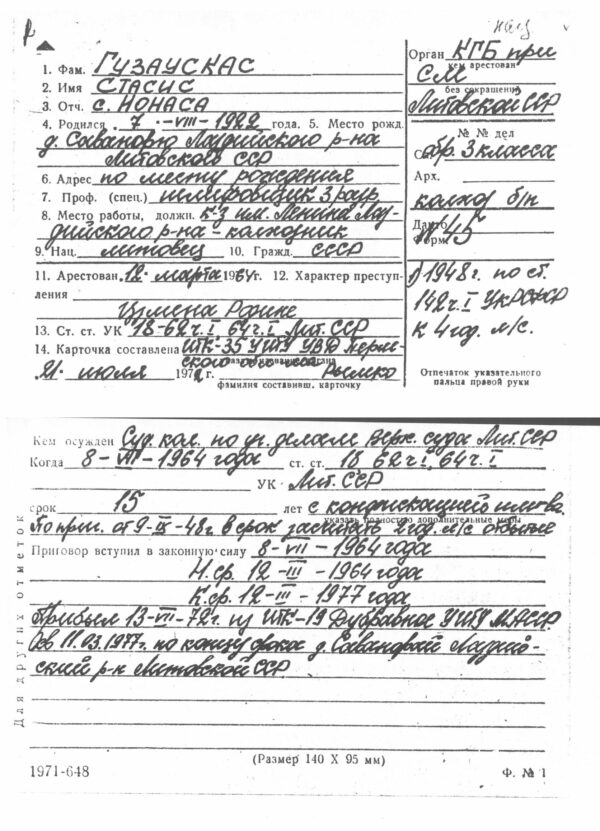 1. Фам. ГУЗАУСКАС
2. Имя СТАСИС
3. Отч. с. ИОНАСА
4. Родился 7 -VIII-1922 года. 5. Место рожд.
Лаздийского р-на
Литовского ССР
6. Адрес по месту рождения
7. Проф. (спец.) шлифовщик 3 разр.
8. Место работы, должн. к-з им. Ленина Лаз-
дийского р-на - колхозник
9. Нац. литовец 10. Гражд. СССР
11. Арестован 12 марта 1964 г. 12. Характер преступ-
ления
Измена Родине
13. Ст. ст. УК 18-62 ч. I 64 ч. I Лит. ССР
14. Карточка составлена ИТК-35 УИТУ УВД Перм-
ского
21 июля 1972 г. Рымко
фамилия составивш. карточку
Орган КГБ при
кем арестован
СМ
без сокращений
Литовской ССР
№ № дел
обр. 3 класса
Арх.
колхоз б/п
№ 45
1948 г. по ст.
142 ч. I УК РСФСР
к 4 год. л/с.
Отпечаток указательного
пальца правой руки
Кем осужден Суд. кол. по уг. делам Верх. суда Лит. ССР
Когда 8-VII-1964 года ст. ст. 18 62 ч. I, 64 ч. I
УК Лит. ССР
срок 15 лет с конфискацией имущ.
указать полностью дополнительные меры
По приг. от 9-IX-48 г. в срок 2 год. л/с
Приговор вступил в законную силу 8-VII-1964 года
Н. ср. 12-III-1964 года
К. ср. 12-III-1977 года
Прибыл 13-VII-72 г. из ИТК-19 Дубравное УИТУ МАССР
Осв 11.03.1977 г. по концу срока д. Лаздий-
ский р-н Литовской ССР
Для других отметок
(Размер 140 X 95 мм)
1971-648 Ф. № 1